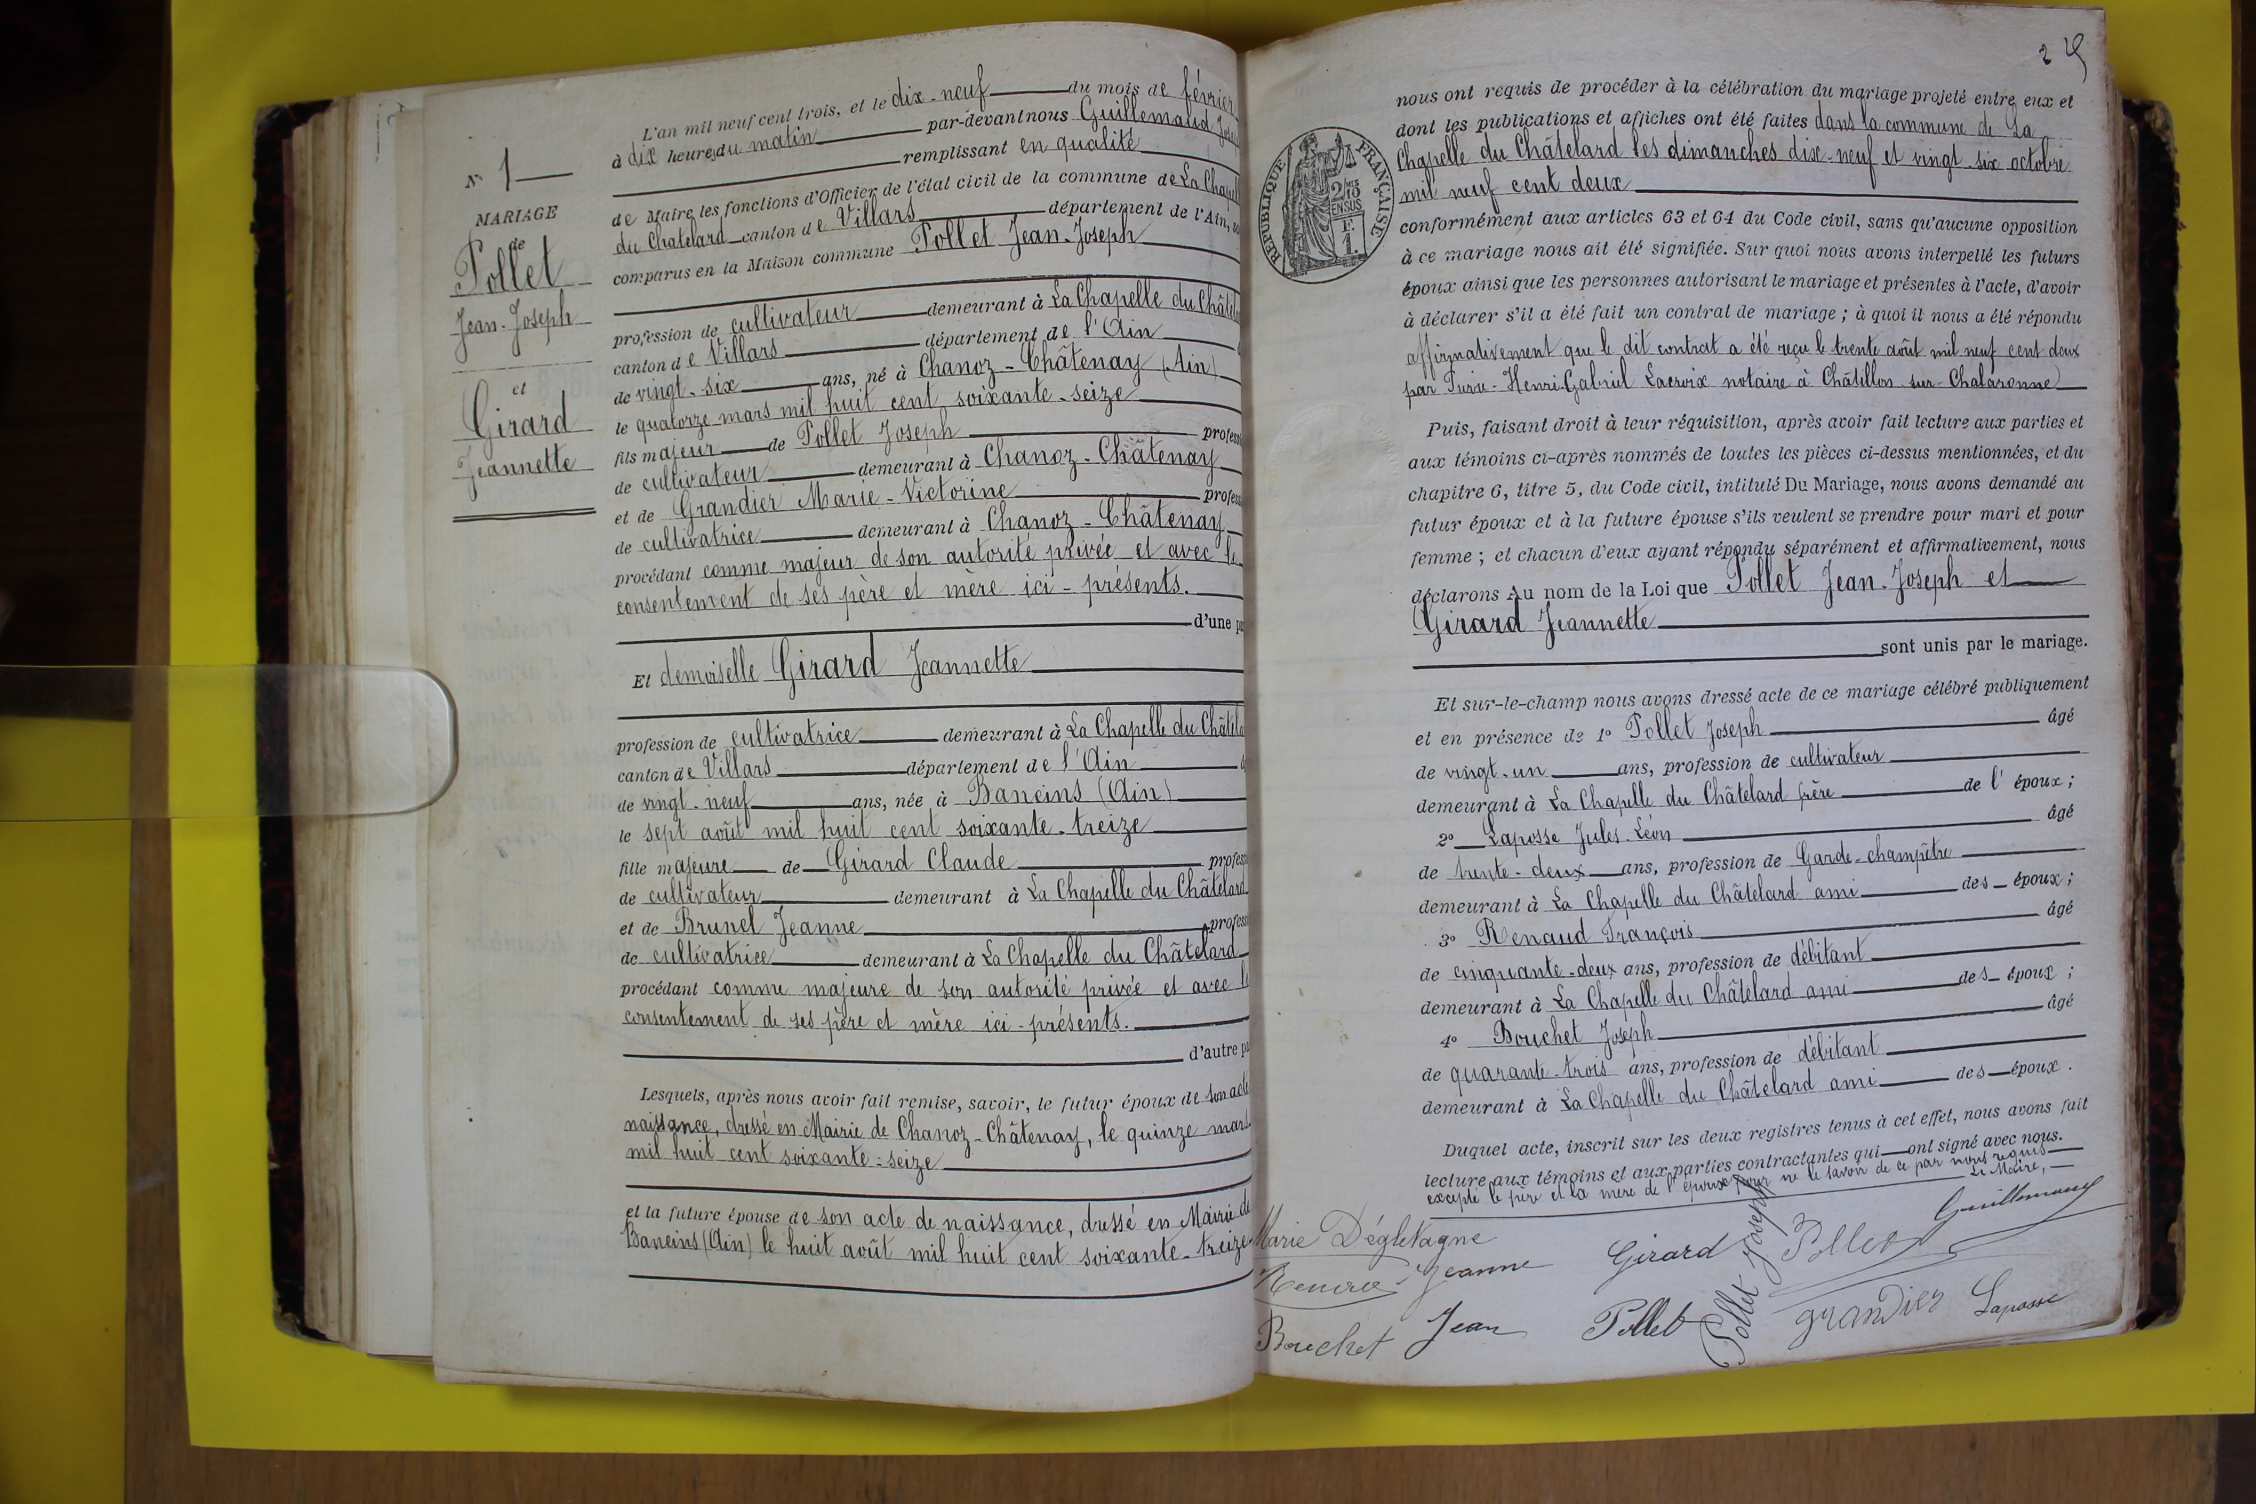 N° 1
MARIAGE
de
Pollet
Jean-Joseph
et
Girard
Jeannette
L'an mil neuf cent trois, et le dix-neuf du mois de février
à dix heures du matin par-devant nous Guillemaud
remplissant en qualité
de Maire les fonctions d'Officier de l'état civil de la commune de La Chapelle
du Châtelard canton de Villars département de l'Ain,
comparus en la Maison commune Pollet Jean-Joseph
profession de cultivateur demeurant à La Chapelle du Châtel
canton de Villars département de l'Ain
de vingt-six ans, né à Chanoz-Châtenay (Ain)
le quatorze mars mil huit cent soixante-seize
fils majeur de Pollet Joseph profess
de cultivateur demeurant à Chanoz-Châtenay
et de Grandier Marie-Victorine profess
de cultivatrice demeurant à Chanoz-Châtenay
procédant comme majeur de son autorité privée et avec le
consentement de ses père et mère ici-présents.
d'une pa
Et demoiselle Girard Jeannette
profession de cultivatrice demeurant à La Chapelle du Châtela
canton de Villars département de l'Ain
de vingt-neuf ans, née à Baneins (Ain)
le sept août mil huit cent soixante-treize
fille majeure de Girard Claude profess
de cultivateur demeurant à La Chapelle du Châtelard
et de Brunel Jeanne profess
de cultivatrice demeurant à La Chapelle du Châtelard
procédant comme majeure de son autorité privée et avec le
consentement de ses père et mère ici-présents.
d'autre pa
Lesquels, après nous avoir fait remise, savoir, le futur époux de son acte
naissance, dressé en Mairie de Chanoz-Châtenay, le quinze mars
mil huit cent soixante-seize
et la future épouse de son acte de naissance, dressé en Mairie de
Baneins (Ain) le huit août mil huit cent soixante-treize
RÉPUBLIQUE FRANÇAISE
nous ont requis de procéder à la célébration du mariage projeté entre eux et
dont les publications et affiches ont été faites dans la commune de La
Chapelle du Châtelard les dimanches dix-neuf et vingt-six octobre
mil neuf cent deux
conformément aux articles 63 et 64 du Code civil, sans qu'aucune opposition
à ce mariage nous ait été signifiée. Sur quoi nous avons interpellé les futurs
époux ainsi que les personnes autorisant le mariage et présentes à l'acte, d'avoir
à déclarer s'il a été fait un contrat de mariage ; à quoi il nous a été répondu
affirmativement que le dit contrat a été reçu le trente août mil neuf cent deux
par Henri-Gabriel Lacroix notaire à Châtillon-sur-Chalaronne
Puis, faisant droit à leur réquisition, après avoir fait lecture aux parties et
aux témoins ci-après nommés de toutes les pièces ci-dessus mentionnées, et du
chapitre 6, titre 5, du Code civil, intitulé Du Mariage, nous avons demandé au
futur époux et à la future épouse s'ils veulent se prendre pour mari et pour
femme ; et chacun d'eux ayant répondu séparément et affirmativement, nous
déclarons Au nom de la Loi que Pollet Jean-Joseph et
Girard Jeannette
sont unis par le mariage.
Et sur-le-champ nous avons dressé acte de ce mariage célébré publiquement
et en présence de 1° Pollet Joseph âgé
de vingt-un ans, profession de cultivateur
demeurant à La Chapelle du Châtelard frère de l'époux ;
2° Laposse Jules-Léon âgé
de trente-deux ans, profession de Garde-champêtre
demeurant à La Chapelle du Châtelard ami des époux ;
3° Renaud François âgé
de cinquante-deux ans, profession de débitant
demeurant à La Chapelle du Châtelard ami des époux ;
4° Bouchet Joseph âgé
de quarante-trois ans, profession de débitant
demeurant à La Chapelle du Châtelard ami des époux.
Duquel acte, inscrit sur les deux registres tenus à cet effet, nous avons fait
lecture aux témoins et aux parties contractantes qui ont signé avec nous.
excepté le père et la mère de l'épouse pour ne le savoir de ce par nous requis
Le Maire,
Guillemaud
Marie
Jeanne Girard Pollet
Bouchet Jean Pollet Pollet Joseph Grandier Laposse